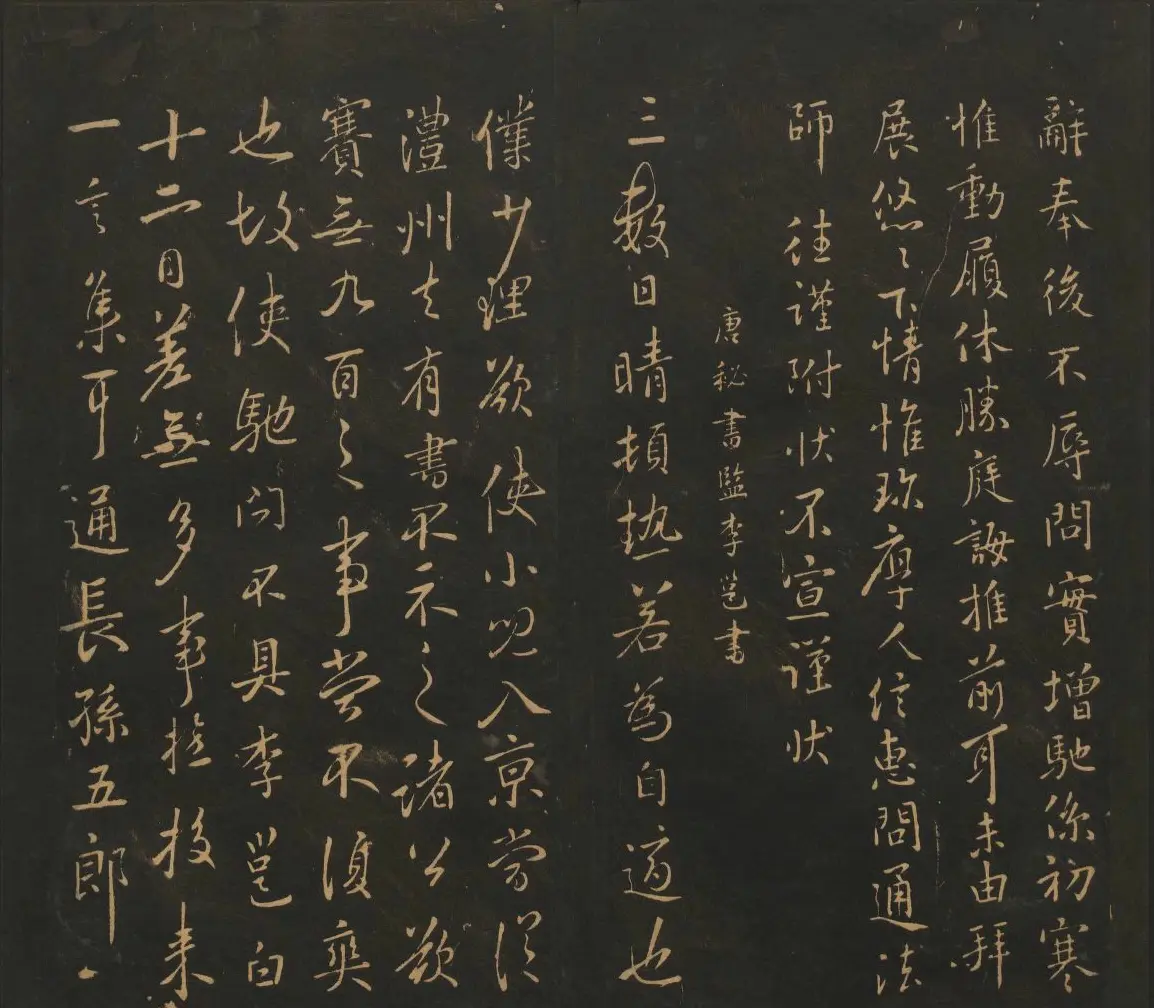 辭奉後不辱問實增馳係初寒
惟動履休勝庭誨推前耳未由拜
展悠〻下情惟珎厚人信惠問通法
師往謹附狀不宣謹狀
唐秘書監李邕書
三數日晴頓熱若為自適也
僕少理欲使小兒入京嘗從
澧州去有書不示之諸公欲
賽無九百之事當不復奕
也故使馳問不具李邕白
十二日差無多事揔投來
一言集耳通長孫五郎